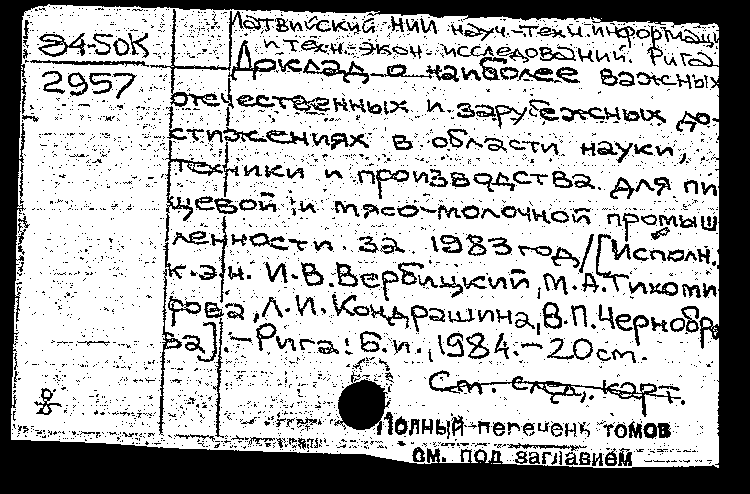 Э4-50К
2957
Латвийский НИИ науч.-техн. информаци
и техн.-экон. исследований. Рига
Доклад о наиболее важных
отечественных и зарубежных до-
стижениях в области науки,
техники и производства для пи
щевой и мясо-молочной промыш
ленности за 1983 год/[Исполн.:
к.э.н. И.В.Вербицкий, М.А.Тихоми
рова, Л.И.Кондрашина, В.П.Чернобро
ва]. - Рига: Б.и., 1984. - 20 см.
См. след. карт.
Полный перечень томов
см. под заглавием